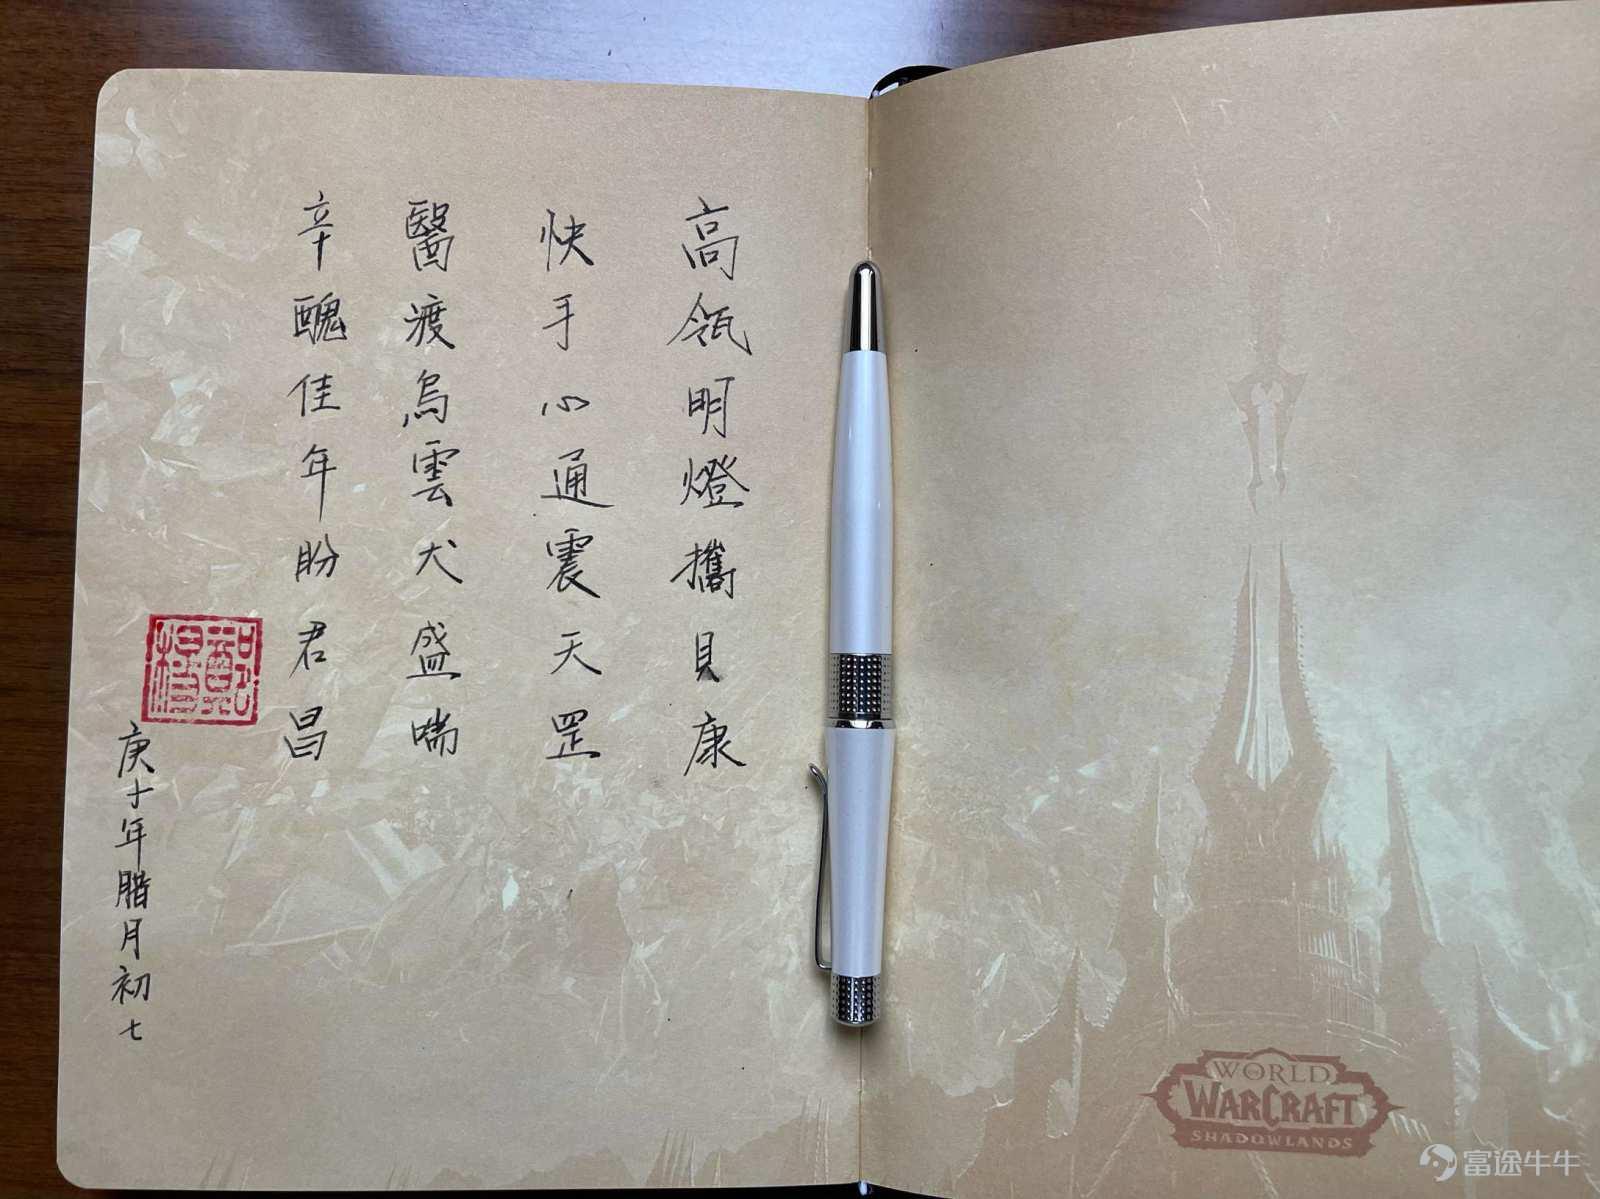 高瓴明燈攜貝康
快手心通震天罡
醫渡烏雲犬盛喘
辛醜佳年盼君昌
庚十年腊月初七
WORLD
WARCRAFT
SHADOWLANDS
富途牛牛